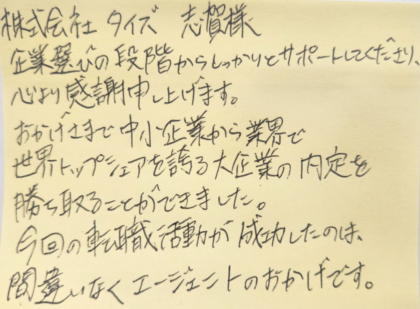 株式会社 タイズ 志賀様
企業選びの段階からしっかりとサポートしてくださり、
心より感謝申し上げます。
おかげさまで中小企業から業界で
世界トップシェアを誇る大企業の内定を
勝ち取ることができました。
今回の転職活動が成功したのは、
間違いなくエージェントのおかげです。